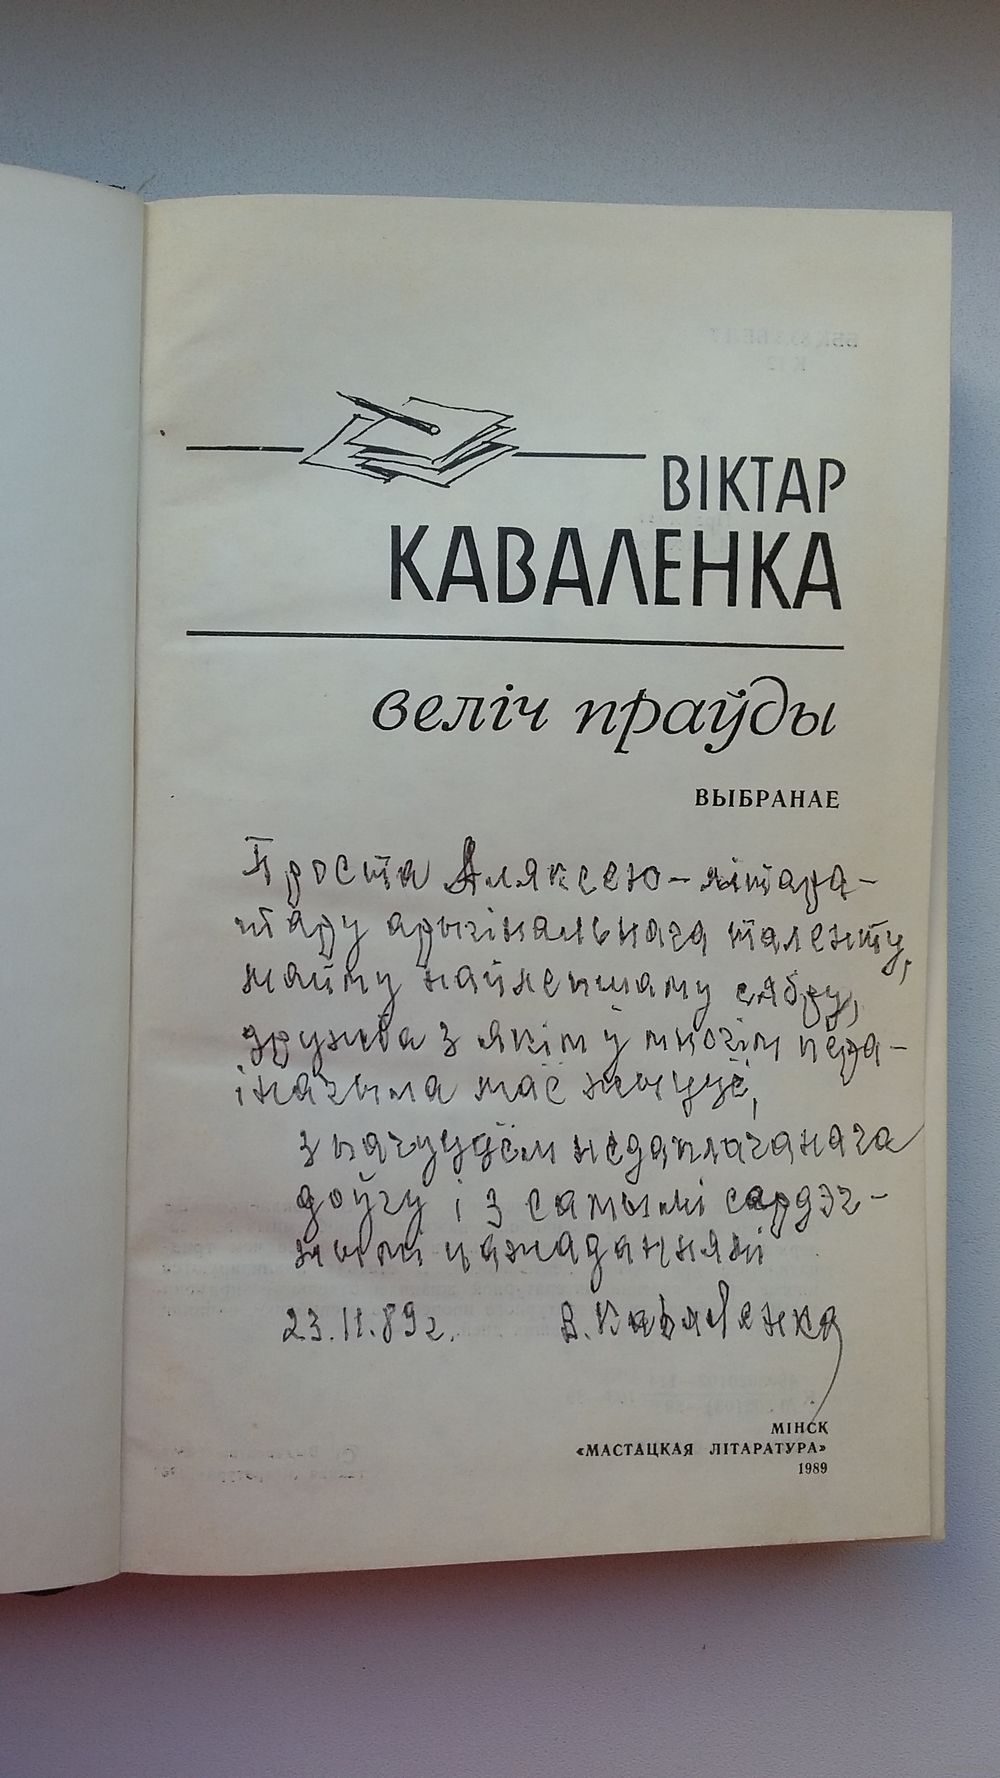 ВІКТАР
КАВАЛЕНКА
веліч праўды
ВЫБРАНАЕ
Проста Аляксею – літара-
тару арыгінальнага таленту,
майму найлепшаму сябру,
дружба з якім у многім пера-
іначыла маё жыццё,
з пачуццём недаплачанага
доўгу і з самымі сардэч-
нымі пажаданнямі
23.11.89г. В. Каваленка
МІНСК
«МАСТАЦКАЯ ЛІТАРАТУРА»
1989